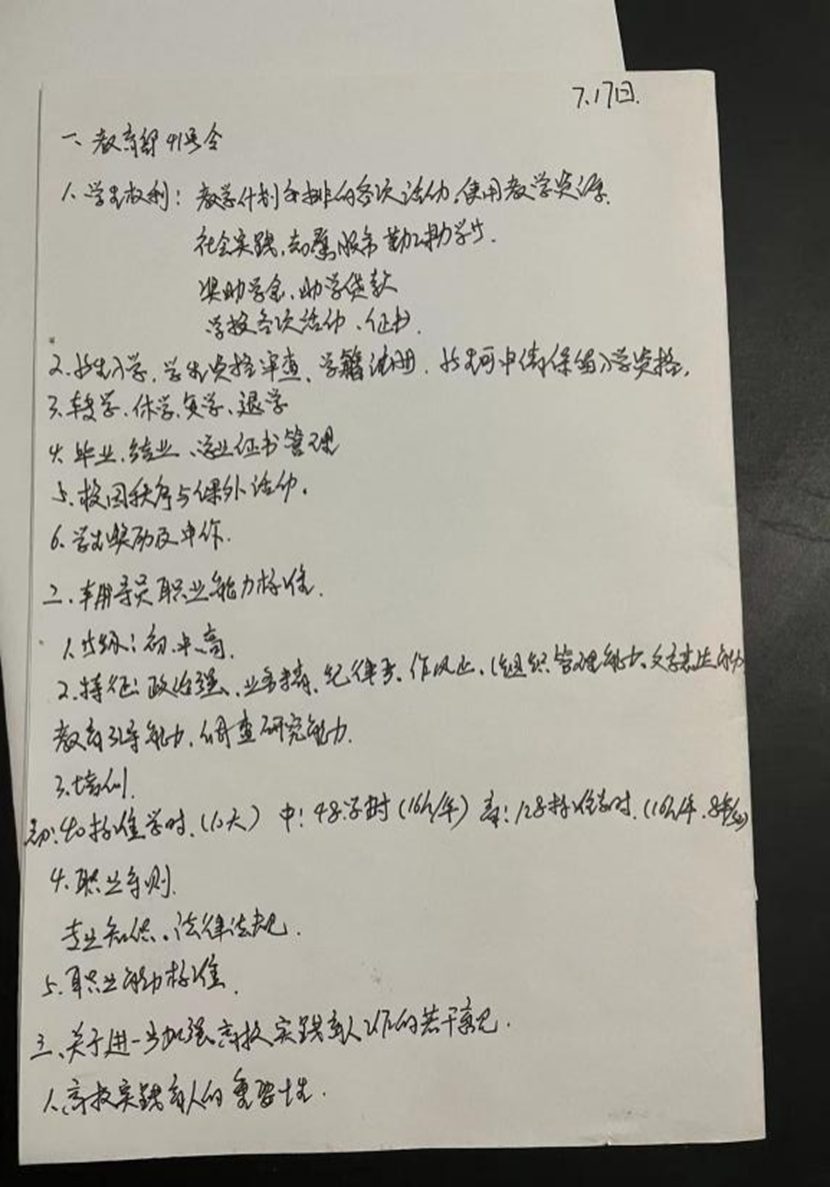 7.17日.
一、教育部41号令
1. 学生权利：教学计划安排的各次活动、使用教学资源.
社会实践、志愿服务 勤工助学.
奖助学金、助学贷款
学校各次活动、证书.
2. 新生入学、学生资格审查、学籍注册. 新生可申请保留入学资格.
3. 转学、休学、复学、退学
4. 毕业、结业、学业证书管理
5. 校园秩序与课外活动.
6. 学生奖励及申诉.
二、辅导员职业能力标准.
1. 等级：初、中、高.
2. 特征：政治强、业务精、纪律严、作风正、组织管理能力、文字表达能力
教育引导能力、调查研究能力.
3. 培训.
初：40标准学时.(10天) 中：48学时(16h/年) 高：128标准学时.(16h/年. 8年
4. 职业守则.
专业知识、法律法规.
5. 职业能力标准.
三、关于进一步加强高校实践育人工作的若干意见.
1. 高校实践育人的重要性.